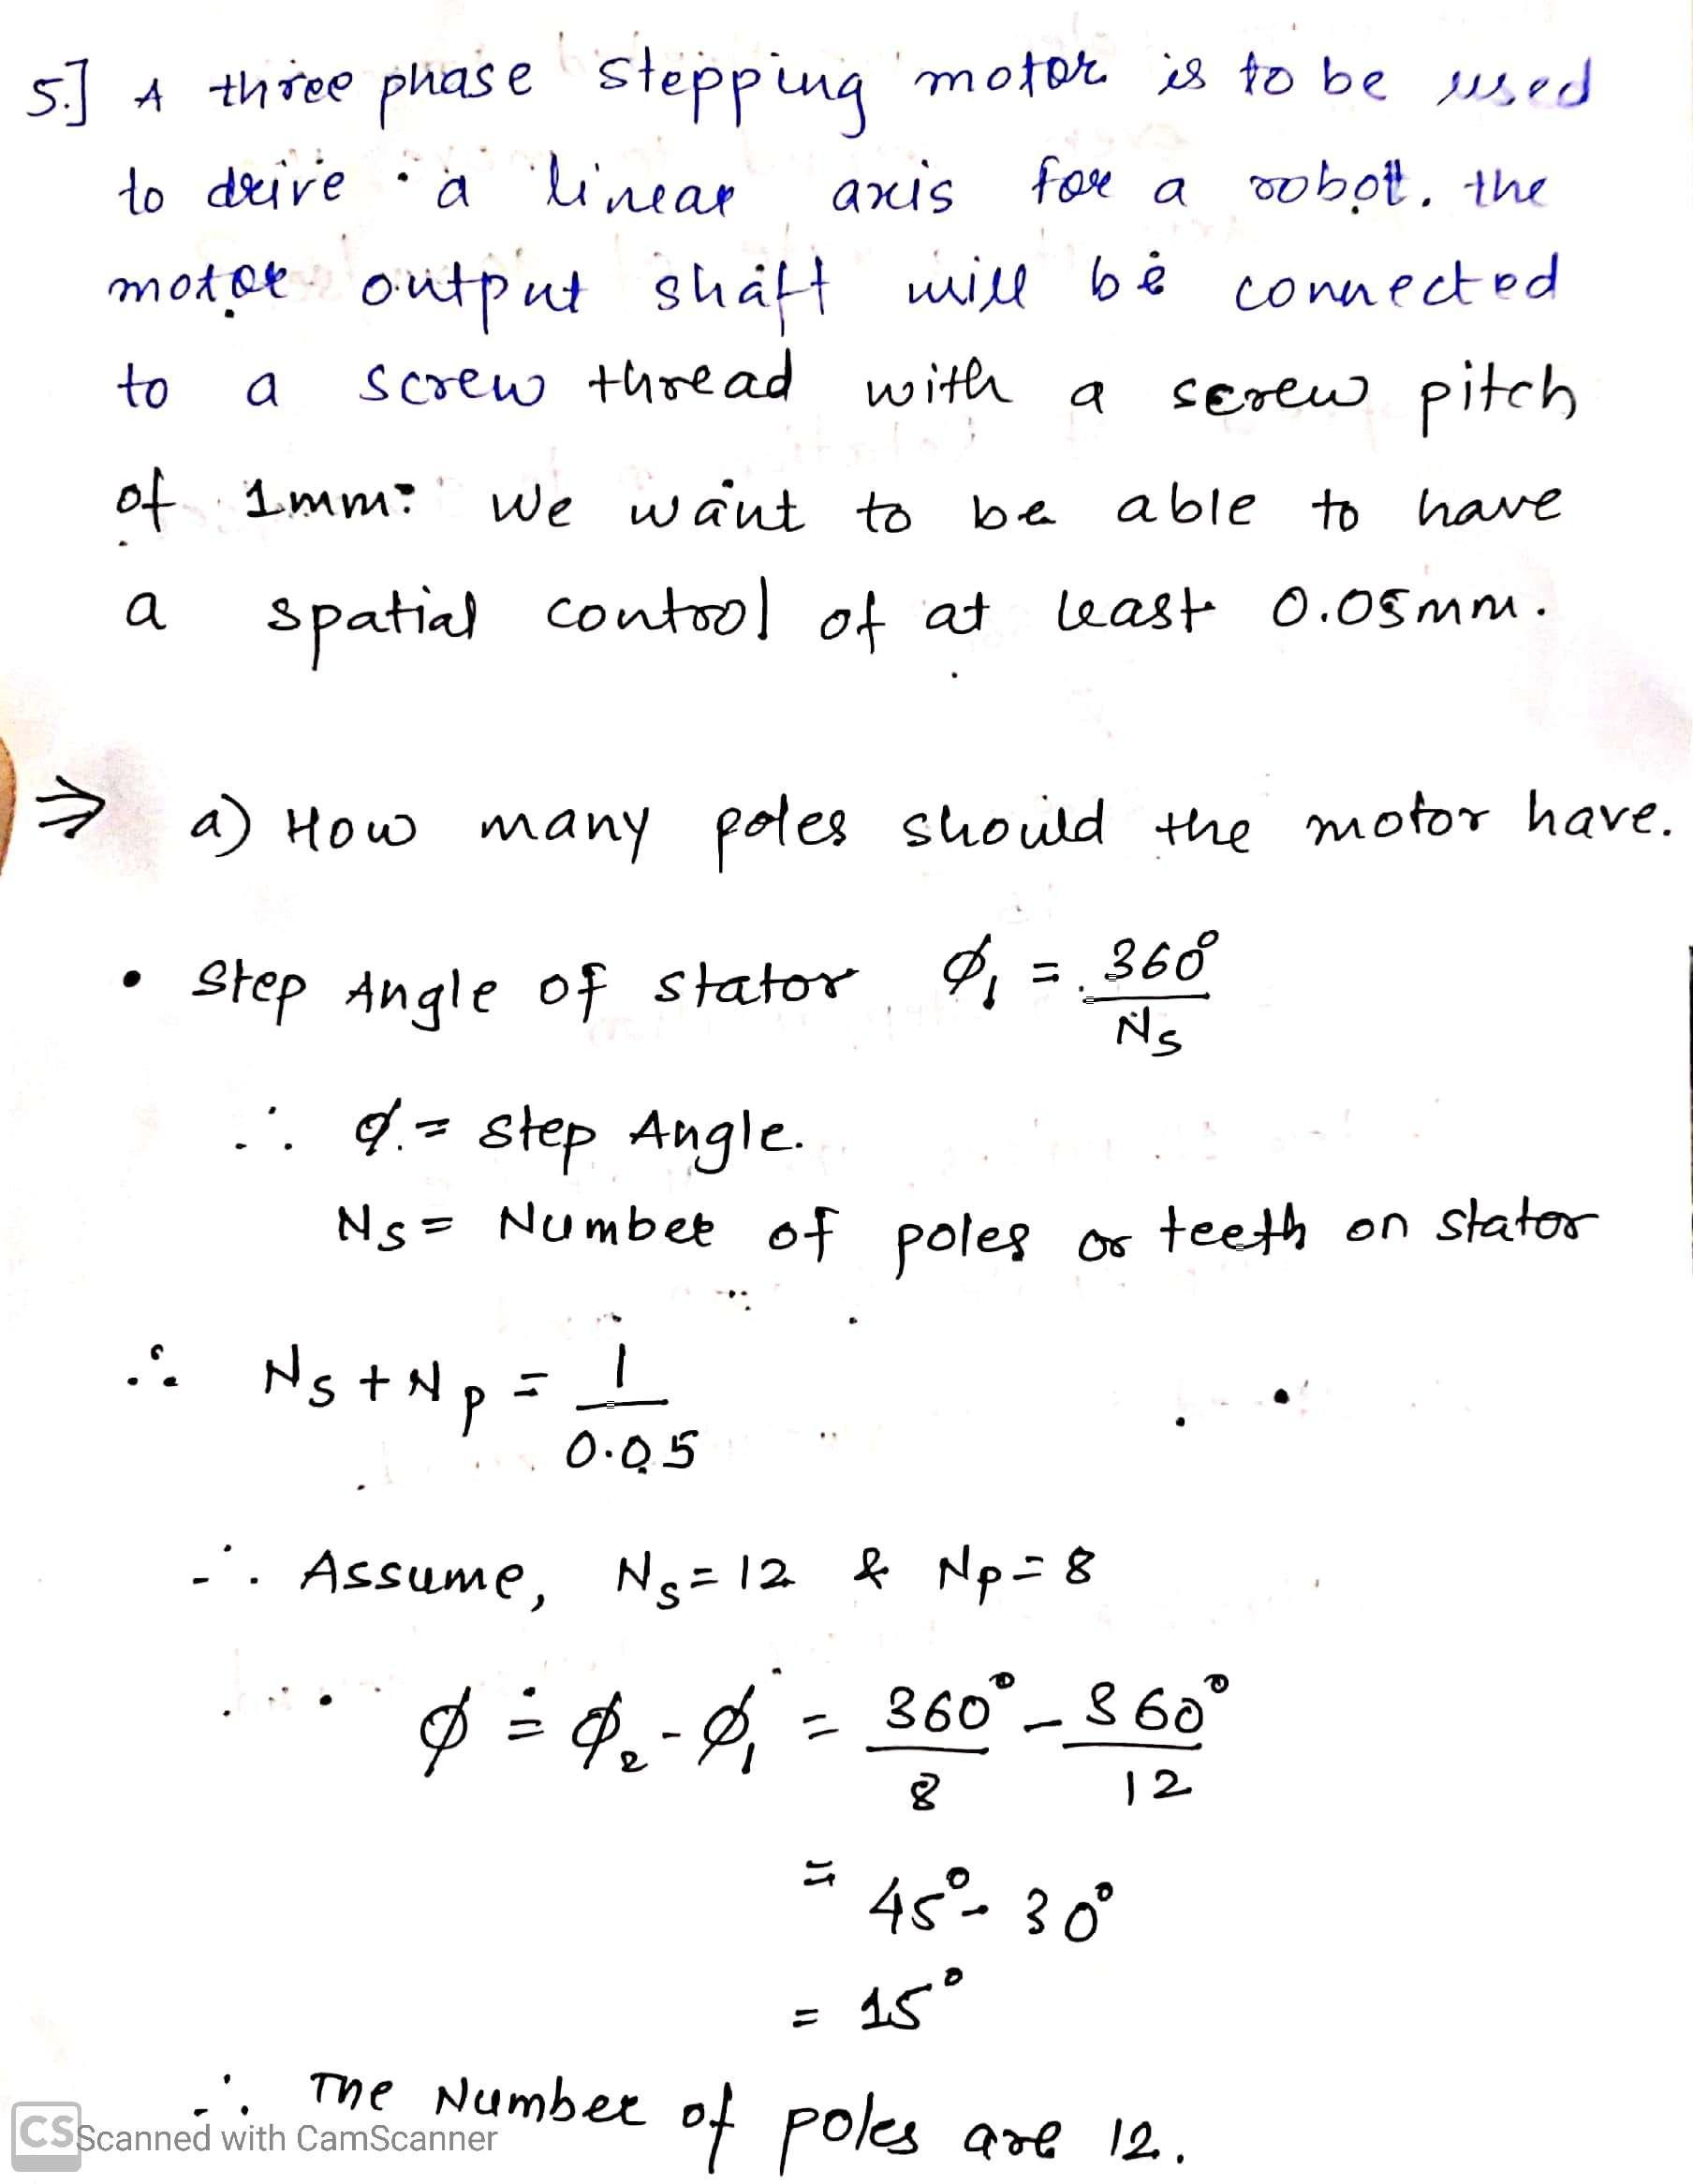 5.] A three phase stepping motor is to be used
to drive a linear axis for a robot. the
motor output shaft will be connected
to a screw thread with a screw pitch
of 1mm. We want to be able to have
a spatial control of at least 0.05mm.
⇒ a) How many poles should the motor have.
• Step Angle of stator ϕ₁ = 360° / Ns
∴ ϕ = step Angle.
Ns = Number of poles or teeth on stator
∴ Ns + Np = 1 / 0.05
∴ Assume, Ns = 12 & Np = 8
∴ ϕ = ϕ₂ - ϕ₁ = 360° / 8 - 360° / 12
= 45° - 30°
= 15°
∴ The Number of poles are 12.
CS Scanned with CamScanner